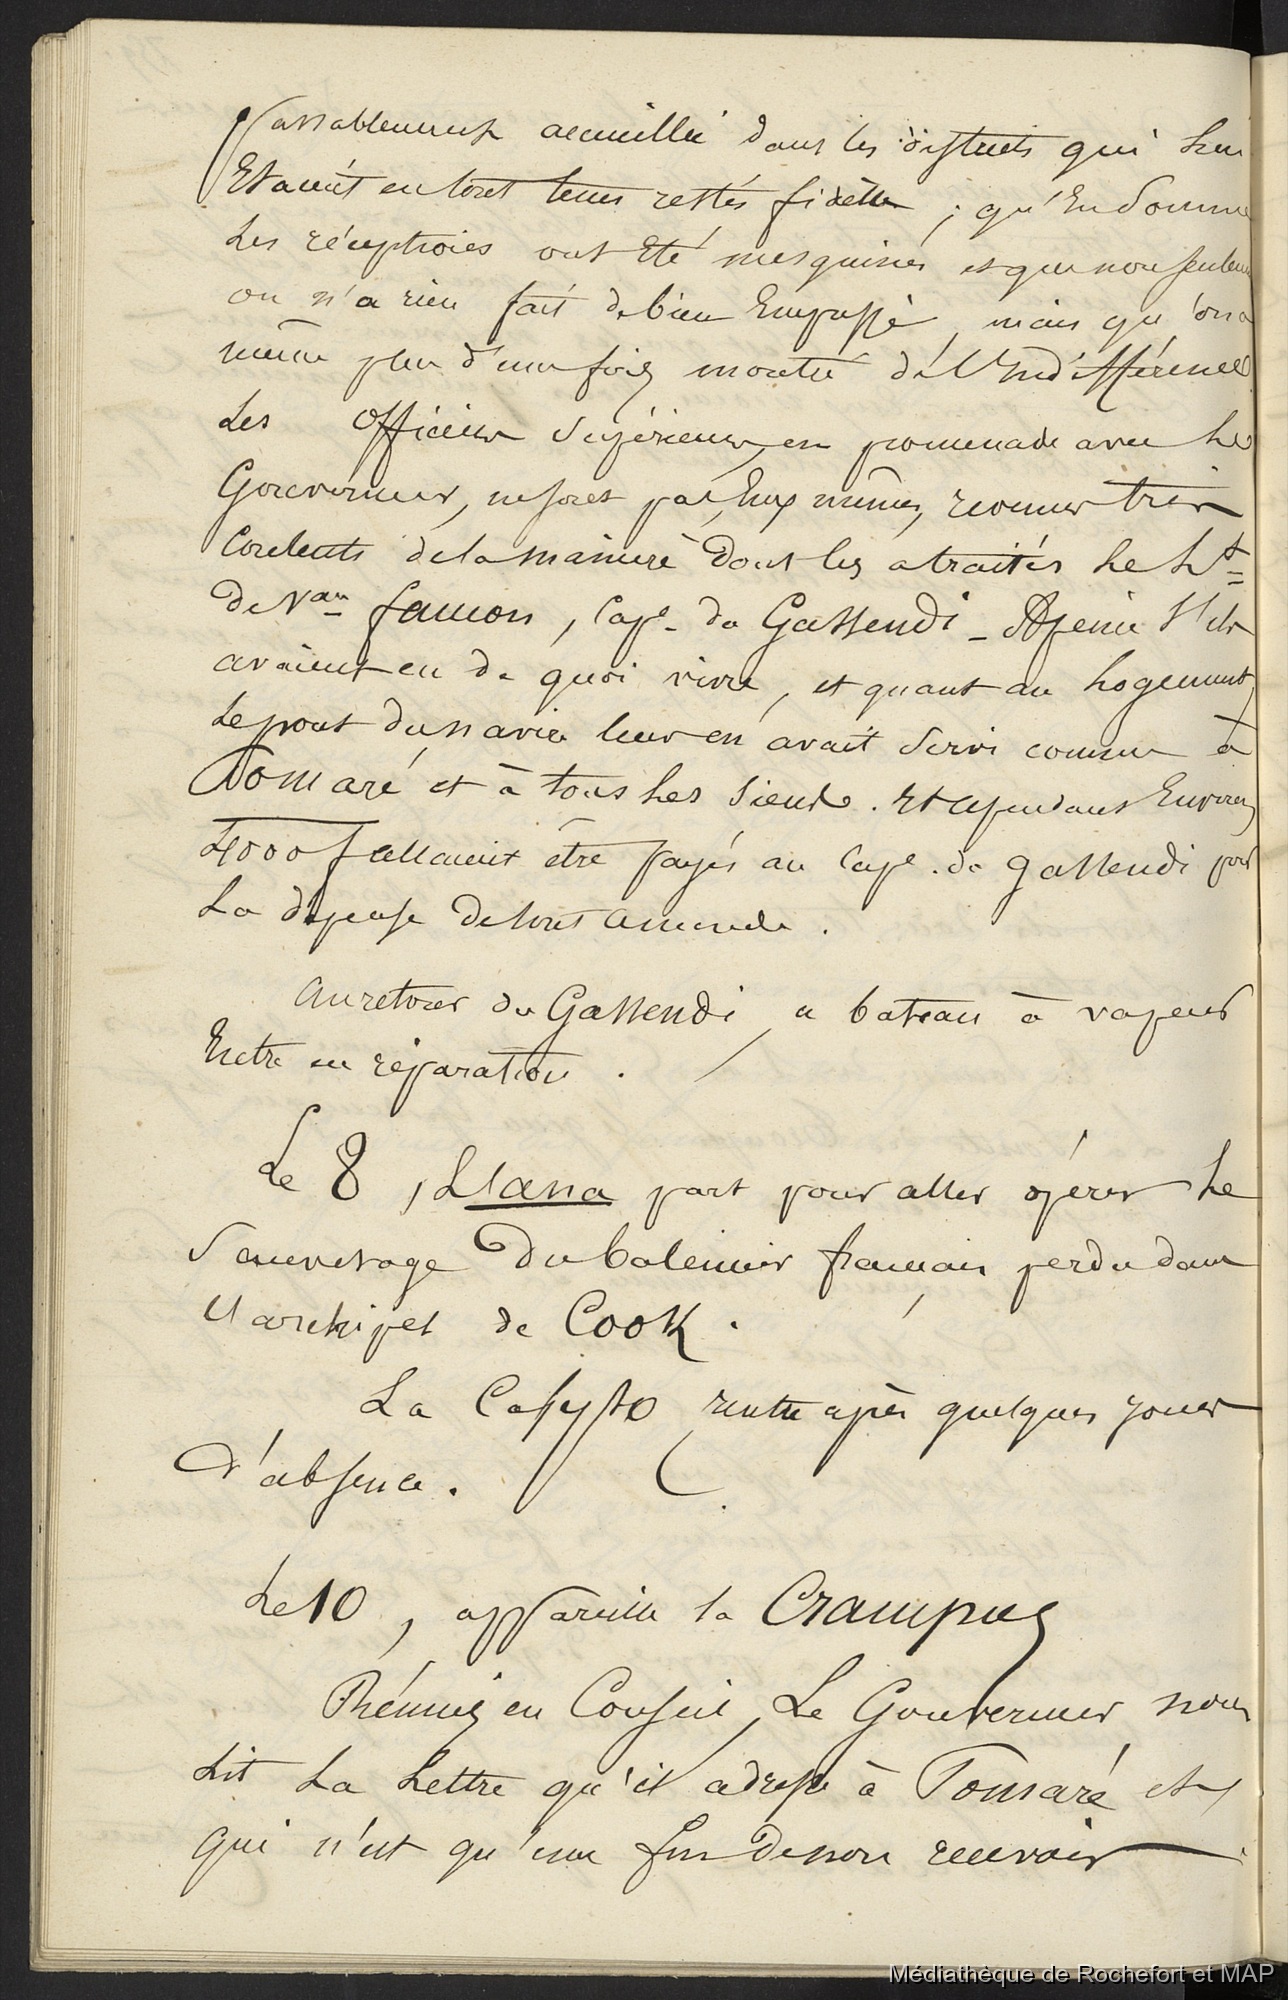 passablement accueillie dans les districts qui lui
Etaient en tout tems restés fidèles ; qu'En Somme
les réceptions ont Eté mesquines et que non seulement
on n'a rien fait de bien Empressé, mais qu'on a
même plus d'une fois montré de l'Indifférence
Les Officiers Supérieurs, en promenade avec le
Gouverneur, ne sont pas, Eux mêmes, revenus très
Contents de la manière dont les a traités le Lt
de Vau famon, Cape du Gassendi _ A peine s'ils
avaient eu de quoi vivre, et quant au logement,
le pont du navire leur en avait Servi comme à
Pomaré et à tous les Siens. Et cependant Environ
4000 f allaient être payés au Cape. du Gassendi pour
La dépense de tout ce monde.
Au retour du Gassendi, ce bateau à vapeur
Entre en réparation.
Le 8, L'Ana part pour aller opérer le
Sauvetage Du baleinier français perdu dans
l'archipel de Cook.
La Calypso rentre après quelques jours
d'absence.
Le 10, appareille la Crampus
Réunis en Conseil, Le Gouverneur nous
lit La Lettre qu'il adresse à Pomaré et
qui n'est qu'une fin de non recevoir
Médiathèque de Rochefort et MAP